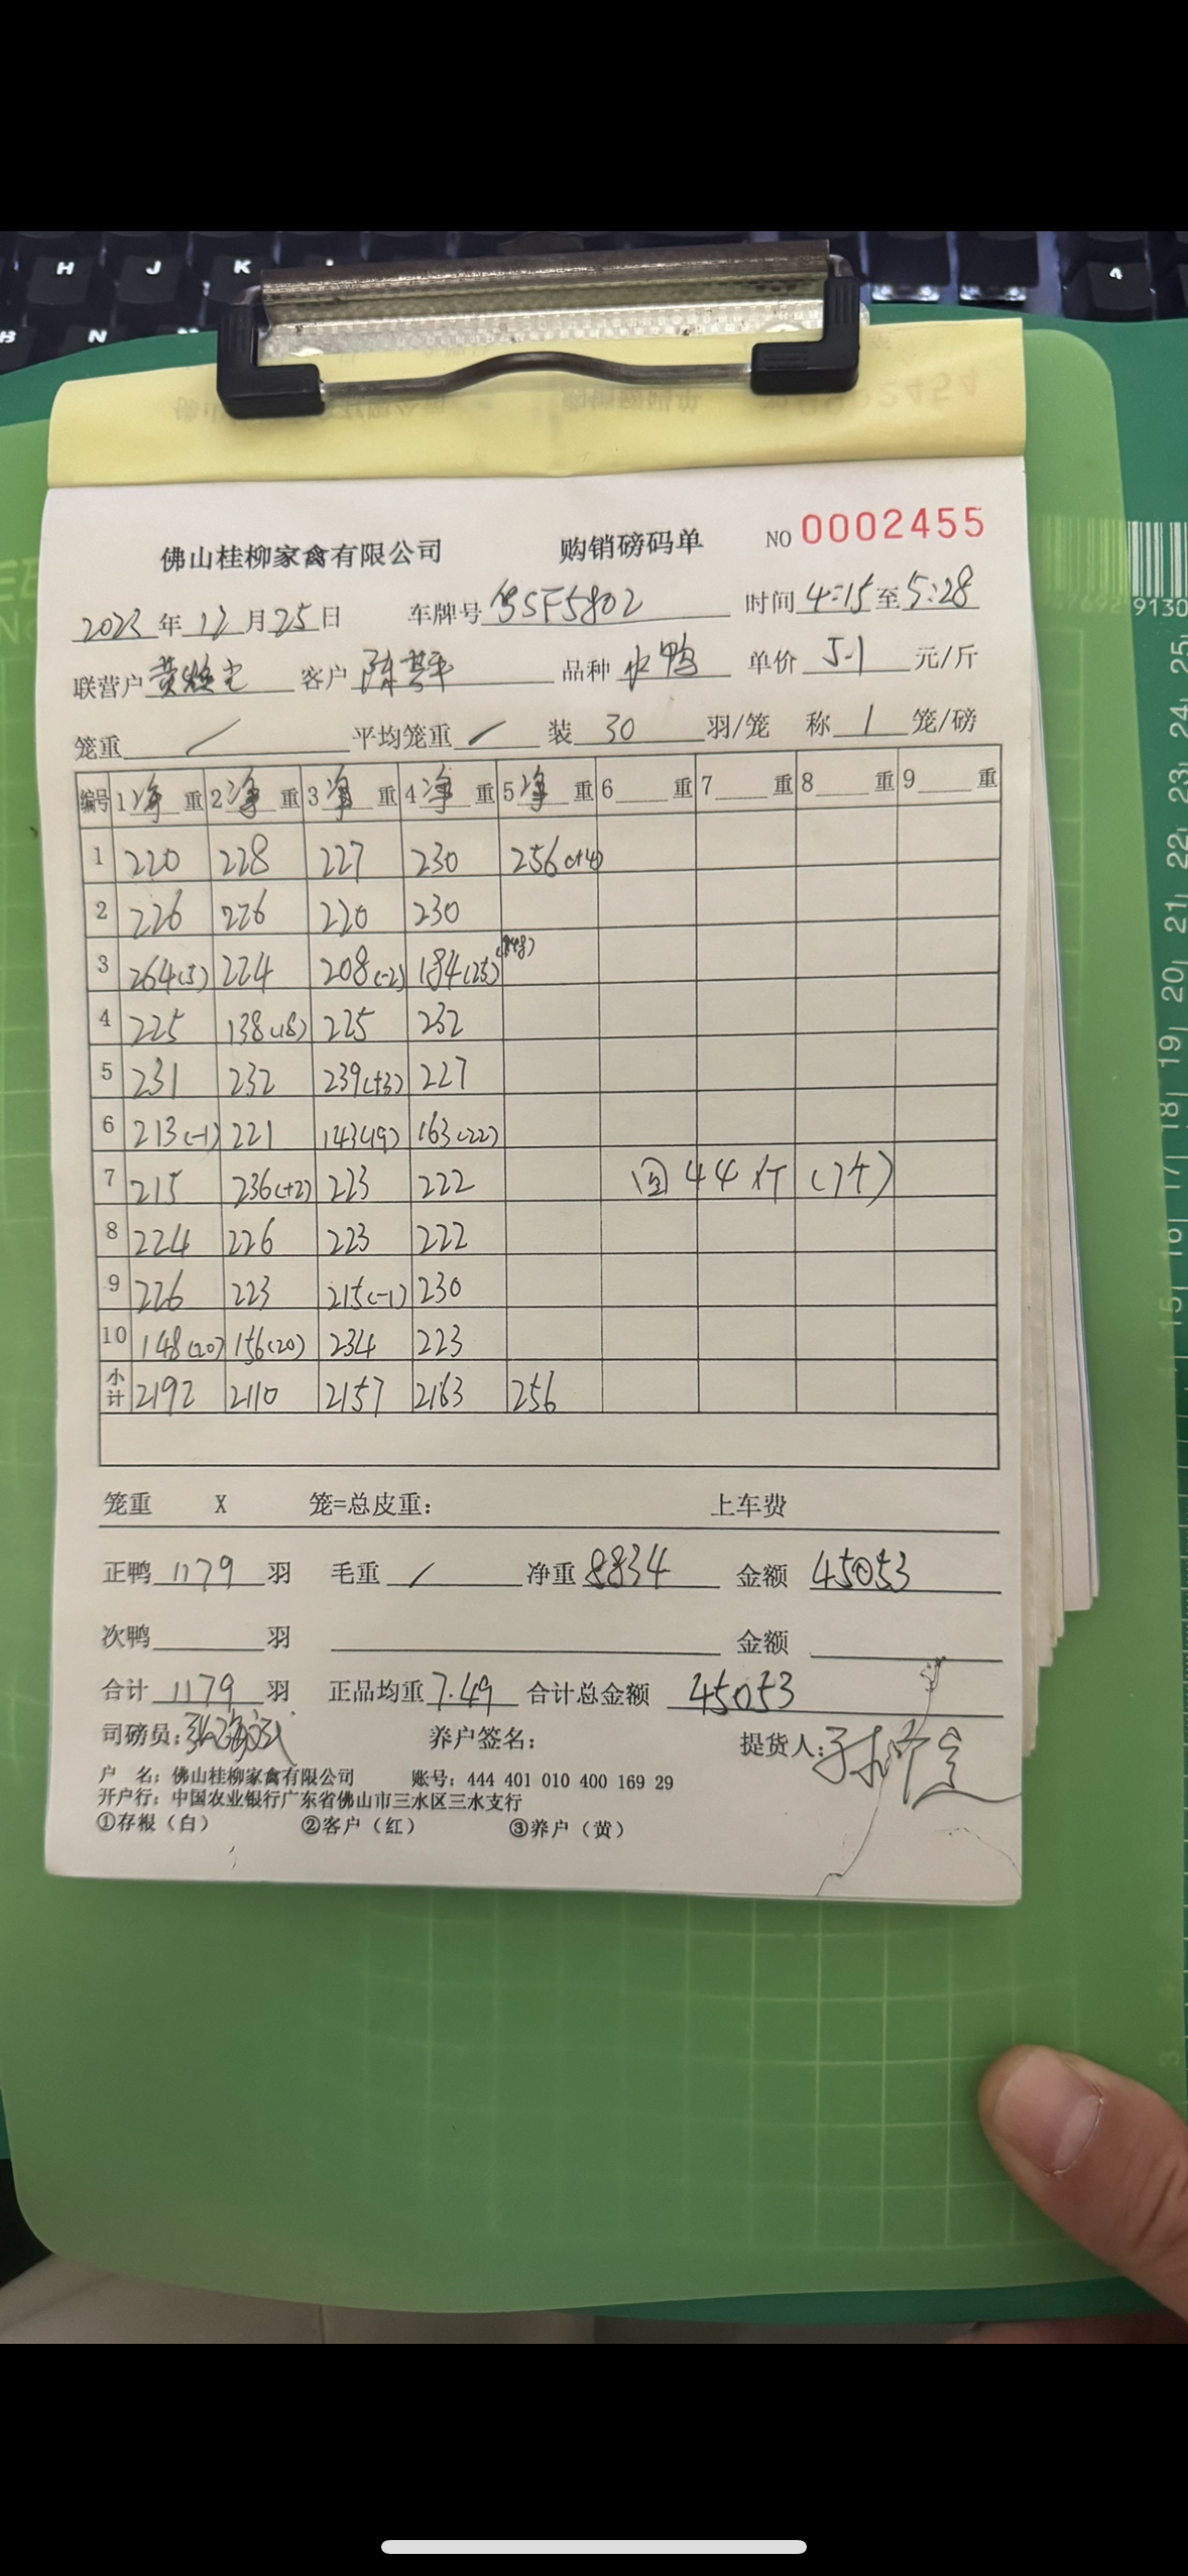 H J K
B N 4
佛山桂柳家禽有限公司 购销磅码单 NO 0002455
2023年12月25日 车牌号 粤SF5802 时间 4:15至5:28
联营户 客户 陈 品种 水鸭 单价 5.1 元/斤
笼重 / 平均笼重 / 装 30 羽/笼 称 1 笼/磅
编号 1净重 2净重 3净重 4净重 5净重 6 重 7 重 8 重 9 重
1 220 228 227 230 256(+4)
2 226 226 220 230
3 264(5) 224 208(-2) 184(25)
4 225 138(18) 225 232
5 231 232 239(+3) 227
6 213(-1) 221 143(19) 163(22)
7 215 236(+2) 223 222 回44斤(7个)
8 224 226 223 222
9 226 223 215(-1) 230
10 148(20) 156(20) 234 223
小计 2192 2110 2157 2163 256
笼重 X 笼=总皮重: 上车费
正鸭 1179 羽 毛重 / 净重 8834 金额 45053
次鸭 羽 金额
合计 1179 羽 正品均重 7.49 合计总金额 45053
司磅员: 养户签名: 提货人:
户 名: 佛山桂柳家禽有限公司 账号: 444 401 010 400 169 29
开户行: 中国农业银行广东省佛山市三水区三水支行
①存根(白) ②客户(红) ③养户(黄)
9130
25
24
23
22
21
20
19
18
17
16
15